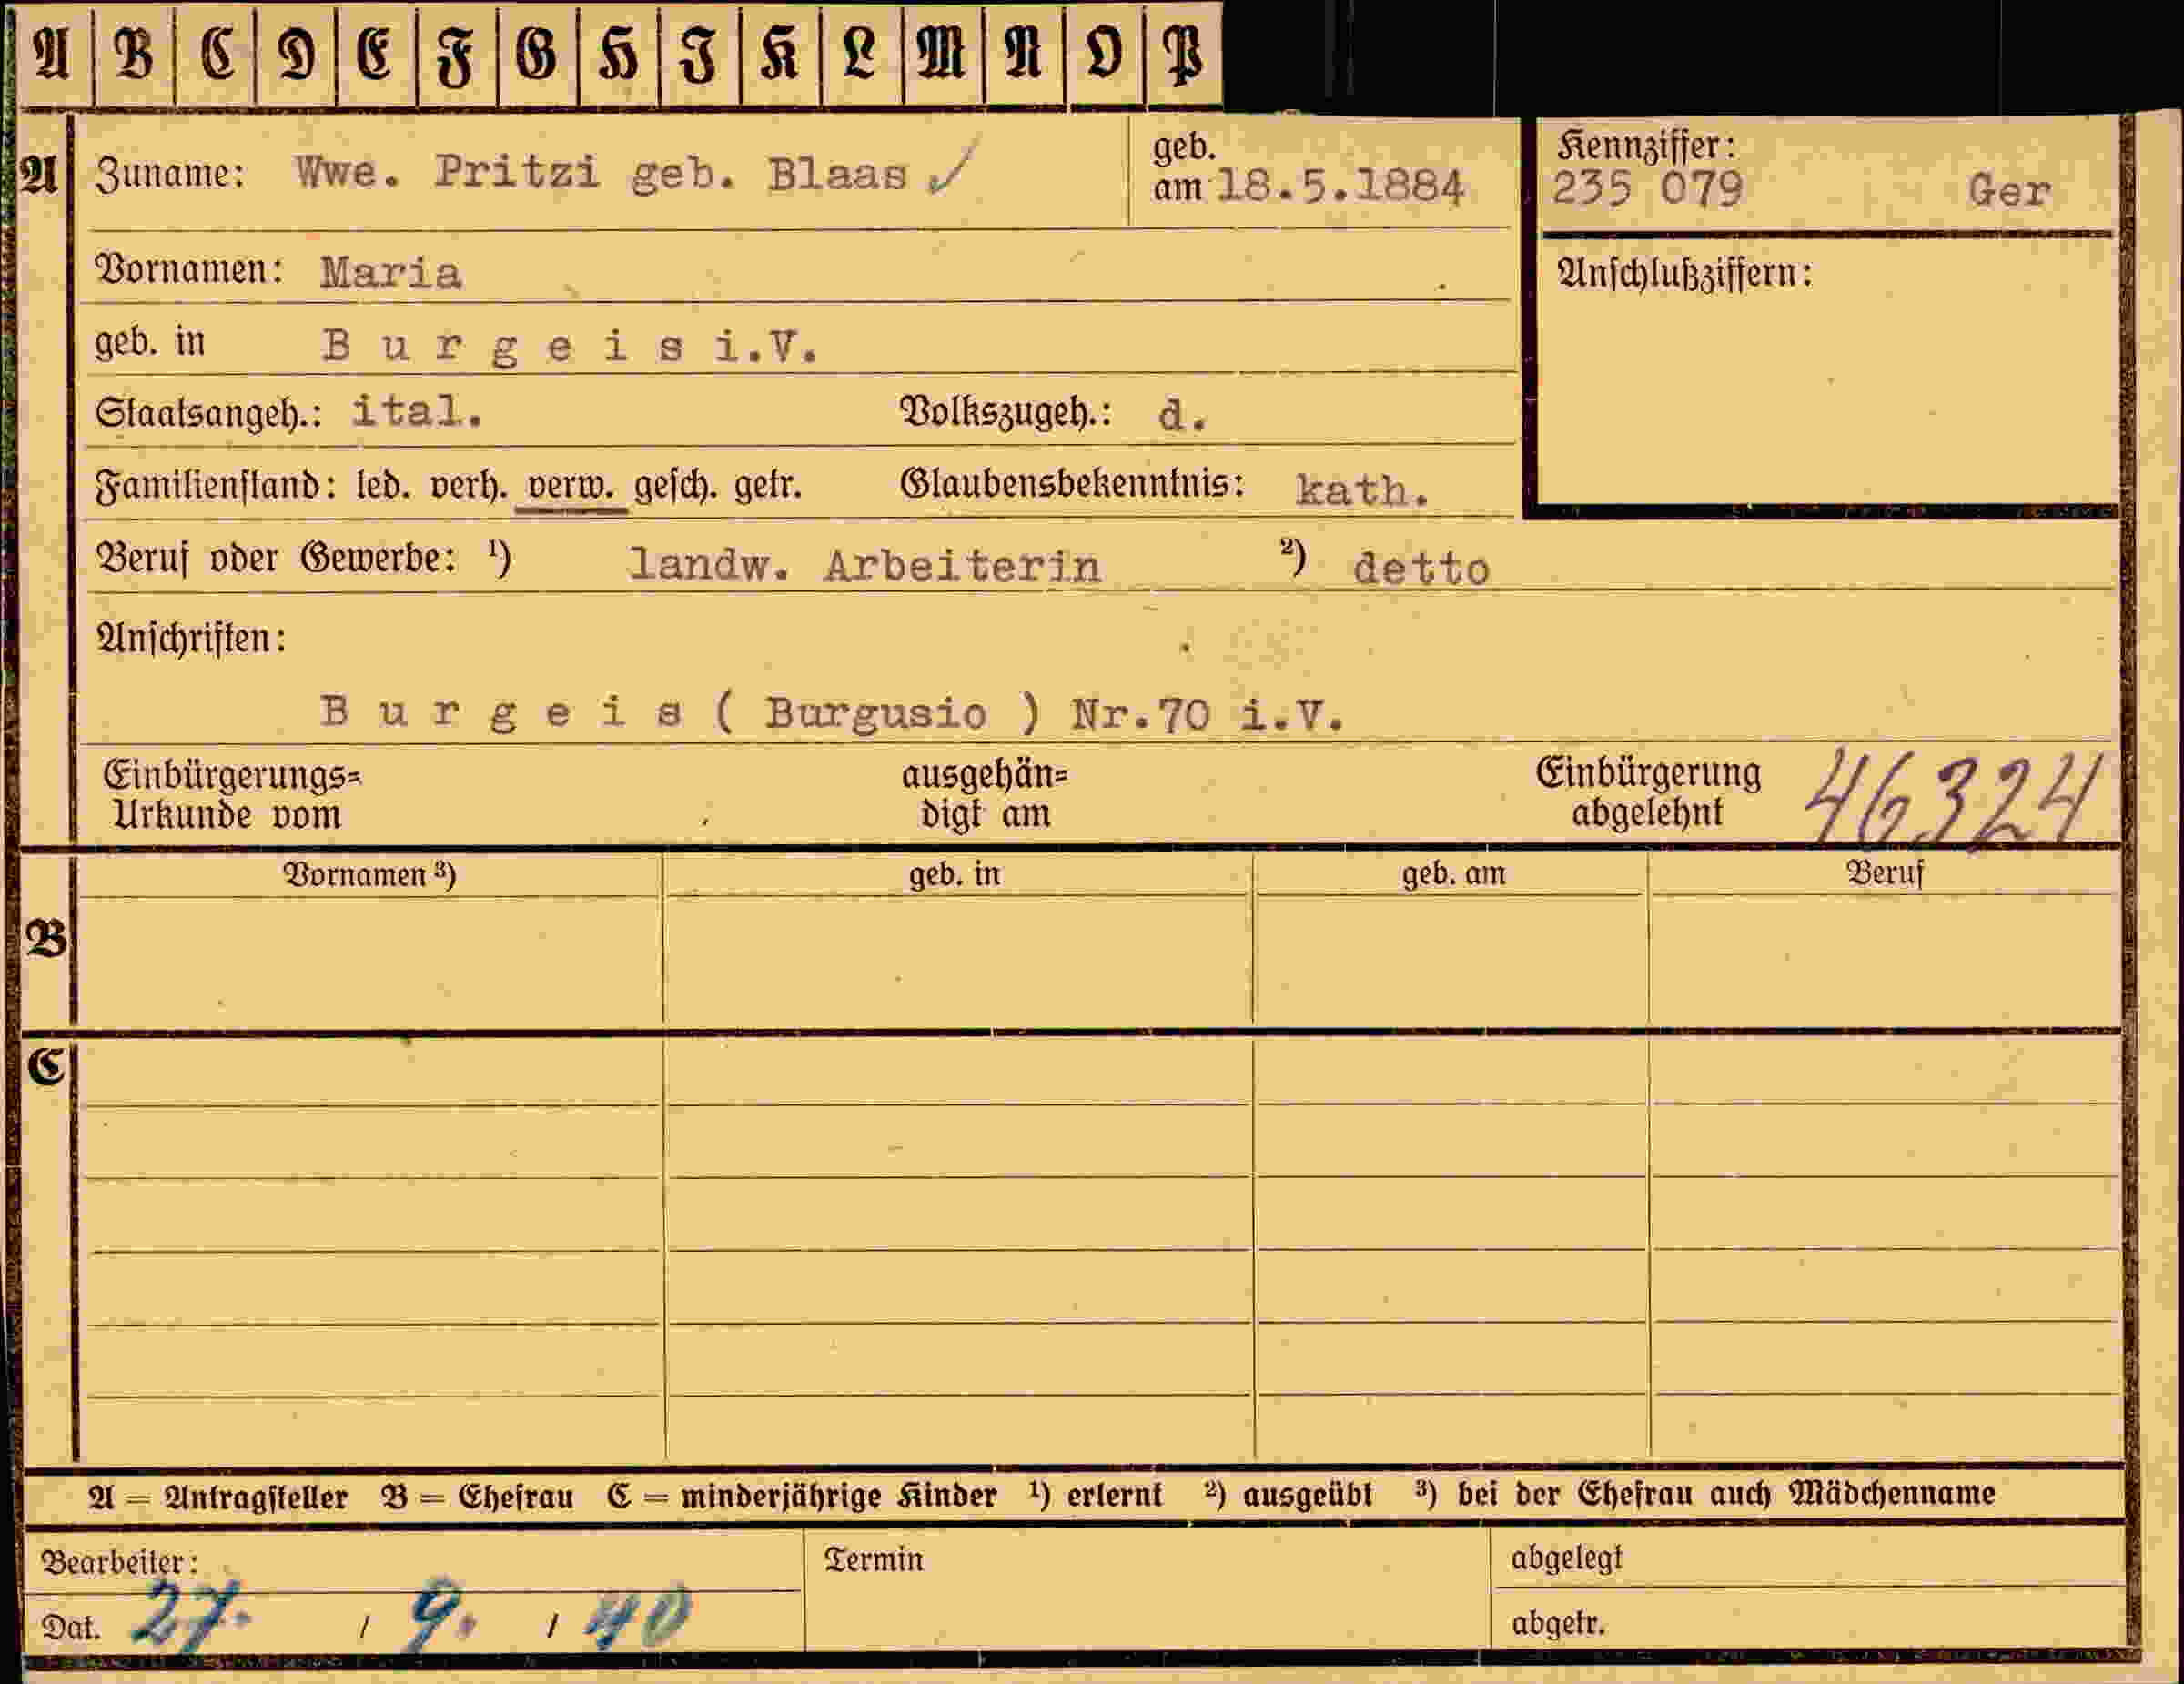 A B C D E F G H I K L M N O P
A Zuname: Wwe. Pritzi geb. Blaas ✓ geb. am 18.5.1884
Kennziffer:
235 079 Ger
Vornamen: Maria
Anschlußziffern:
geb. in B u r g e i s i.V.
Staatsangeh.: ital. Volkszugeh.: d.
Familienstand: led. verh. verw. gesch. getr. Glaubensbekenntnis: kath.
Beruf oder Gewerbe: ¹) landw. Arbeiterin ²) detto
Anschriften:
B u r g e i s ( Burgusio ) Nr.70 i.V.
Einbürgerungs= ausgehän= Einbürgerung 46324
Urkunde vom digt am abgelehnt
Vornamen ³) geb. in geb. am Beruf
B
C
A = Antragsteller B = Ehefrau C = minderjährige Kinder ¹) erlernt ²) ausgeübt ³) bei der Ehefrau auch Mädchenname
Bearbeiter: Termin abgelegt
Dat. 27. / 9. / 40 abgetr.